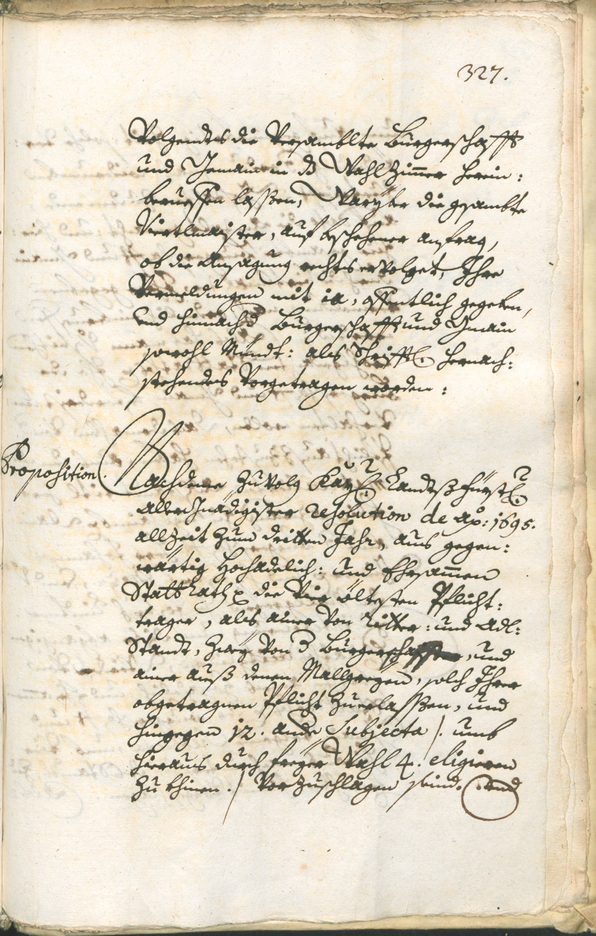 327.
Volgendts die Versamblte Burgerschafft
und Gemain in dß Wahl Zimer herein:
berueffen lassen, Warÿber die gesambte
Viertlmaister, auf beschehener anfrag,
ob die Ansagung rechts ervolget, Ihre
Vermeldungen mit ia, offentlich gegeben,
und hinnach d Burgerschafft und Gmain
sowohl Mündt: als Schrifftl. hernach:
stehendes Vorgetragen worden:
Proposition.
Nachdeme zuvolg Kaÿl. Landtsfürstl.
allergnädigister resolution de ao: 1695.
allzeit zum dritten Jahr, aus gegen:
wärtig Hochadelich: und Ehrsammen
Statt Rath die Vier eltesten Pflicht:
trager, als ainer von Ritter: und Adl:
Standt, zweÿ von d Burgerschafft, und
ainer auß denen Mallgreÿen, solch Ihrer
obgetragnen Pflicht zuerlassen, und
hingegen 12. ande Subjecta /: umb
hieraus durch freÿe Wahl 4. eligieren
zu khinen :/ Vorzuschlagen seind. und